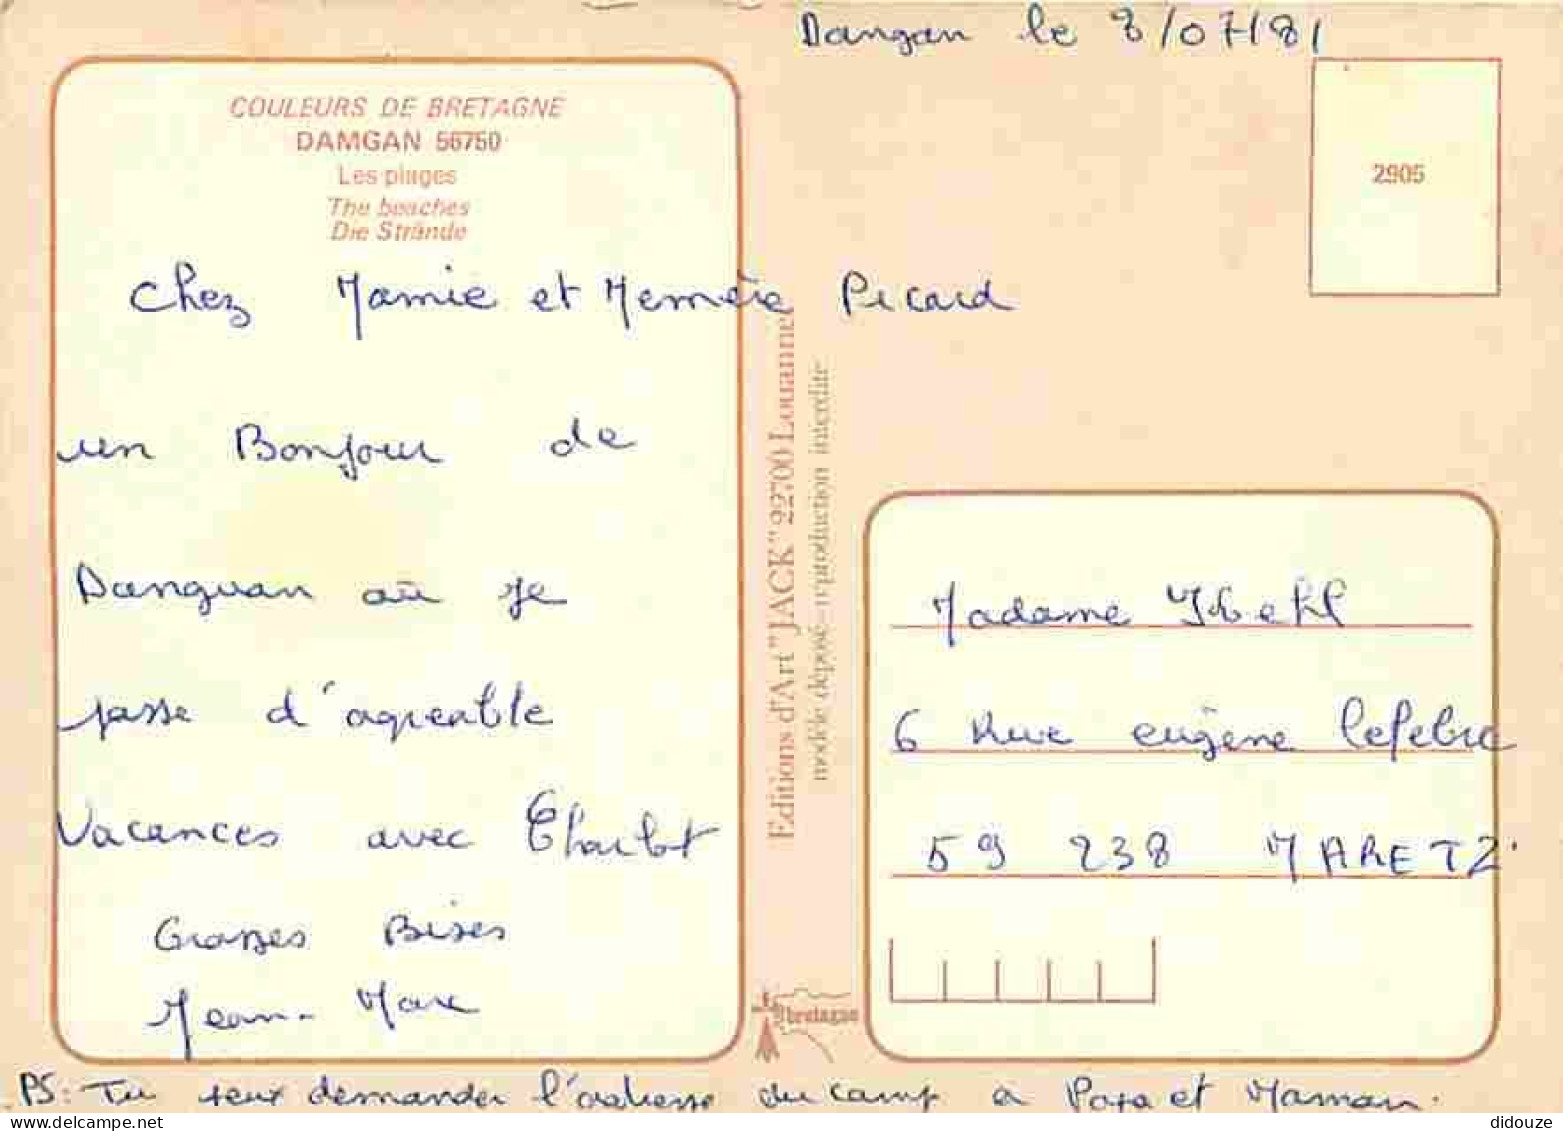 Dangan le 8/07/81
COULEURS DE BRETAGNE
DAMGAN 56750
Les plages
The beaches
Die Strände
2905
Chez Mamie et Memère Picard
un Bonjour de
Danguan où je
passe d'agreable
Vacances avec
Grosses Bises
Jean-Marc
PS: Tu peux demander l'adresse du camp a Papa et Maman.
Editions d'Art "JACK" 22700 Louannec
modèle déposé - reproduction interdite
bretagne
Madame
6 Rue eugène lefebvre
59 238 MARETZ.
didouze